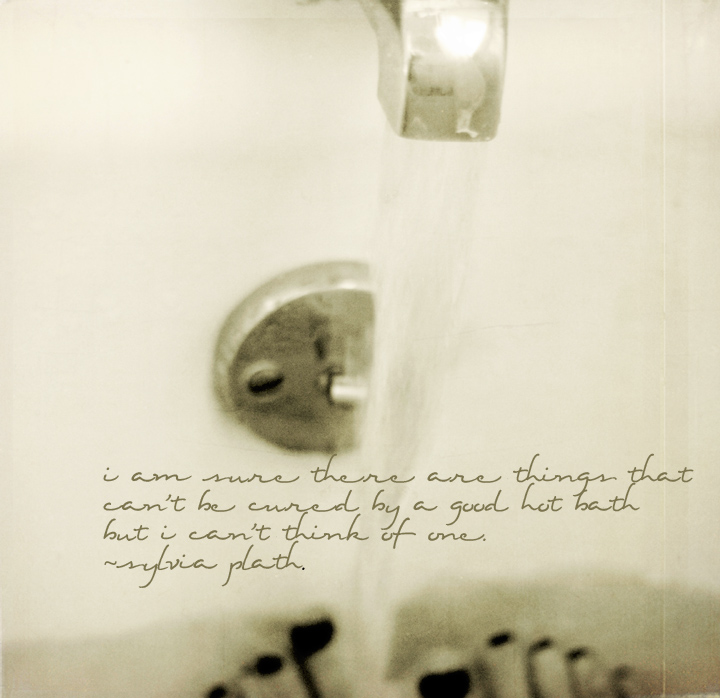 i am sure there are things that
can't be cured by a good hot bath
but i can't think of one.
~sylvia plath.